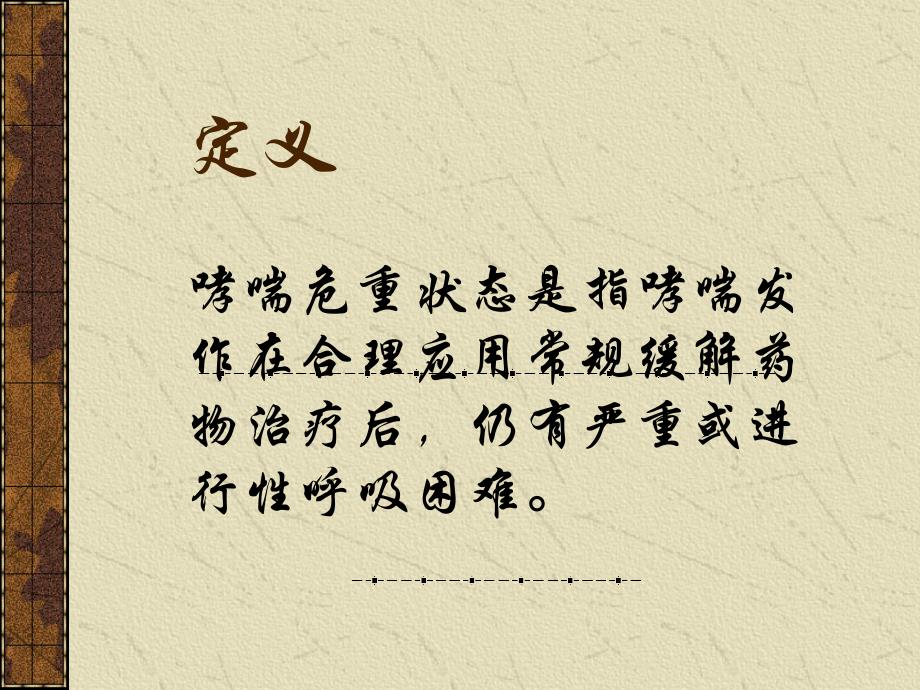 定义
哮喘危重状态是指哮喘发
作在合理应用常规缓解药
物治疗后，仍有严重或进
行性呼吸困难。